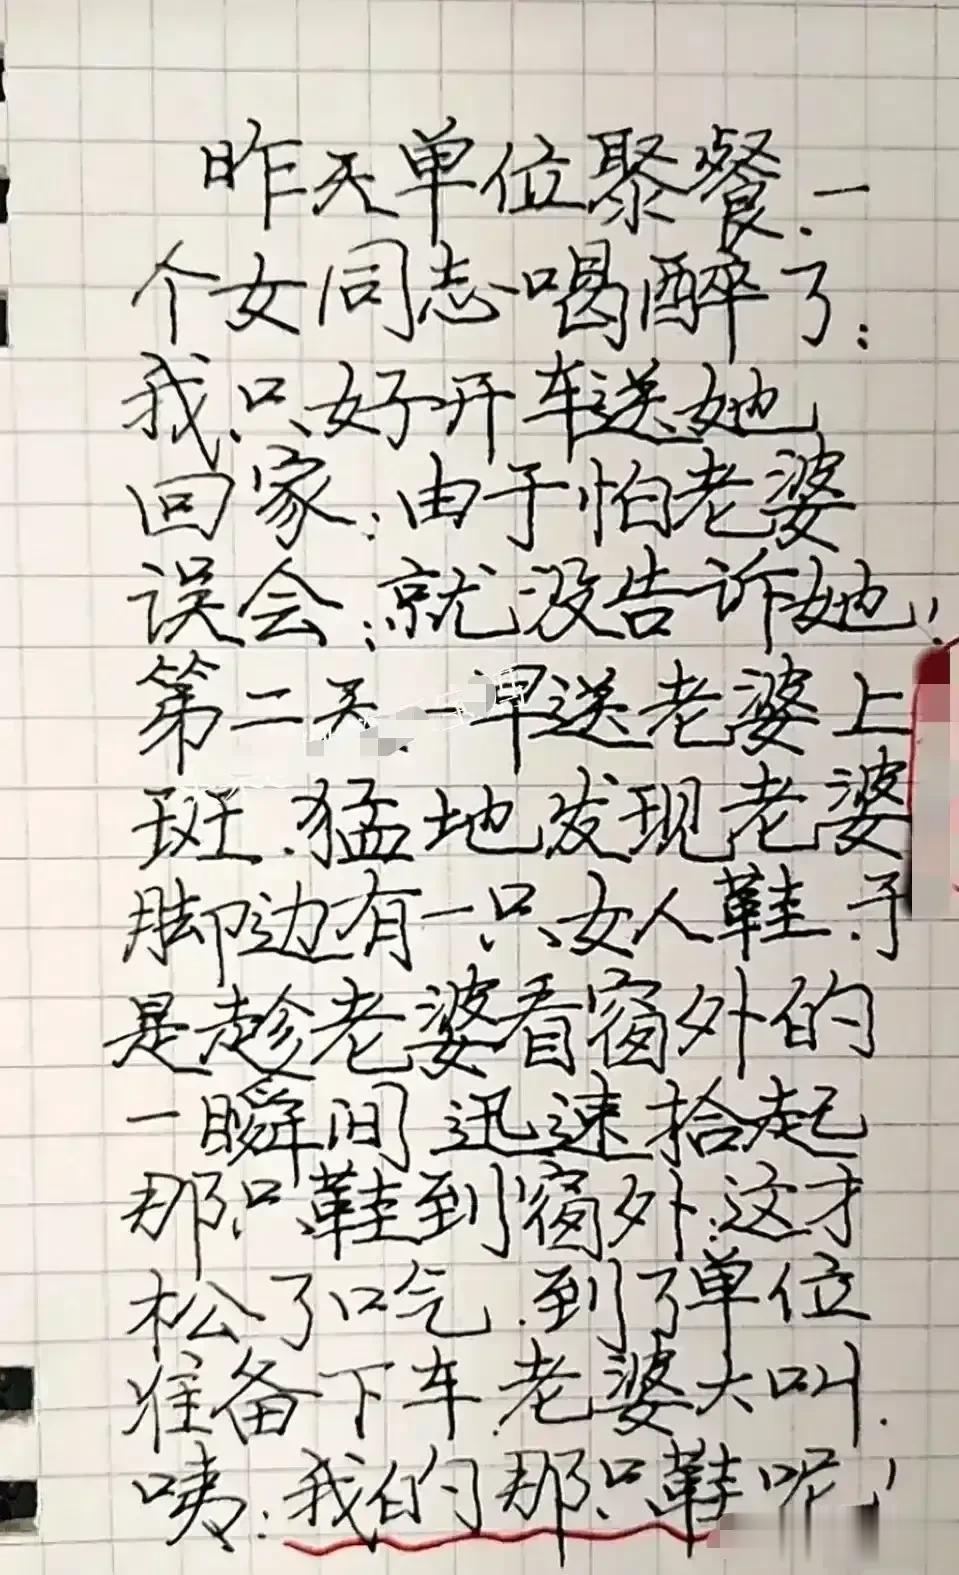 昨天单位聚餐.一
个女同志喝醉了;
我只好开车送她
回家;由于怕老婆
误会;就没告诉她!
第二天.一早送老婆上
班.猛地发现老婆
脚边有一只女人鞋.于
是趁老婆看窗外的
一瞬间迅速拾起
那只鞋到窗外;这才
松了口气.到了单位
准备下车.老婆大叫.
咦;我的那只鞋呢!